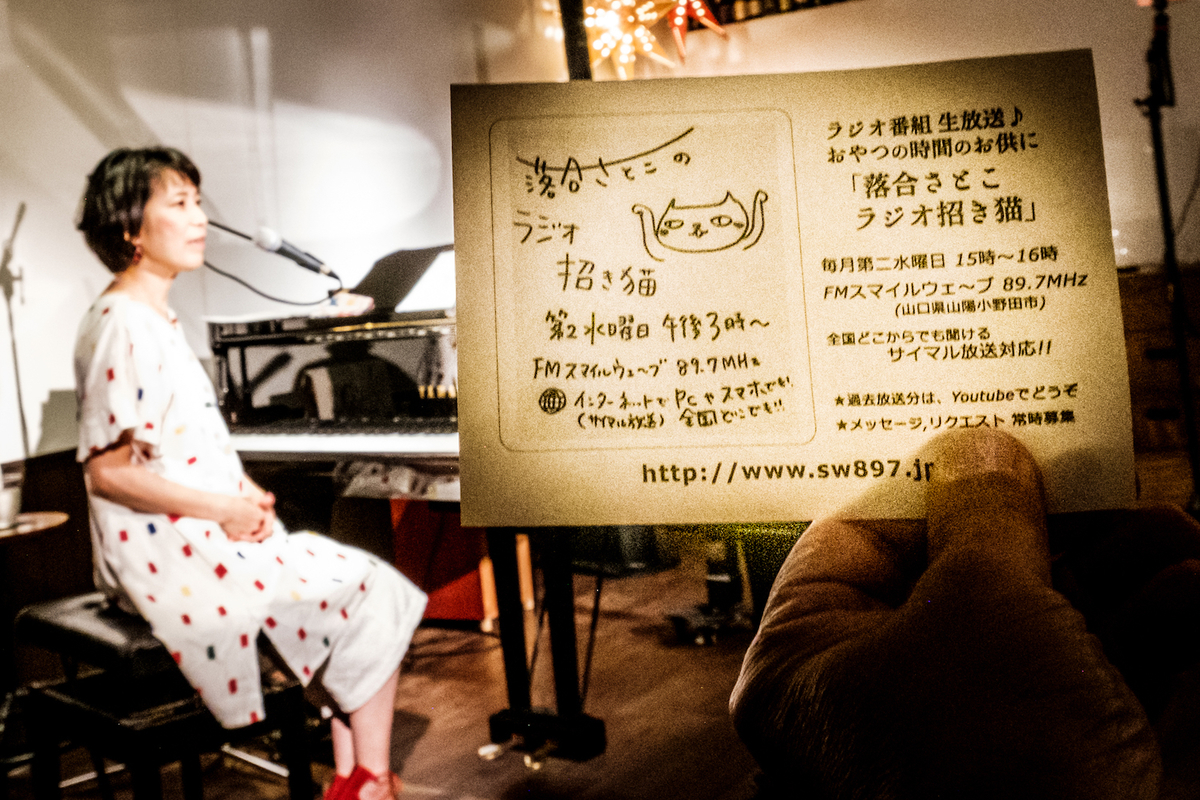 落合さとこの
ラジオ
招き猫
第2水曜日 午後3時〜
FMスマイルウェ〜ブ 89.7MHz
インターネットで PCやスマホでも!
(サイマル放送) 全国どこでも!!
ラジオ番組 生放送♪
おやつの時間のお供に
「落合さとこ
ラジオ招き猫」
毎月第二水曜日 15時〜16時
FMスマイルウェ〜ブ 89.7MHz
(山口県山陽小野田市)
全国どこからでも聞ける
サイマル放送対応!!
★過去放送分は、Youtubeでどうぞ
★メッセージ,リクエスト 常時募集
http://www.sw897.jp